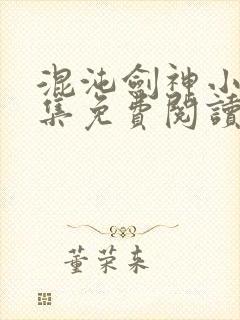 混沌劍神小
集免費閱讀
董荣来